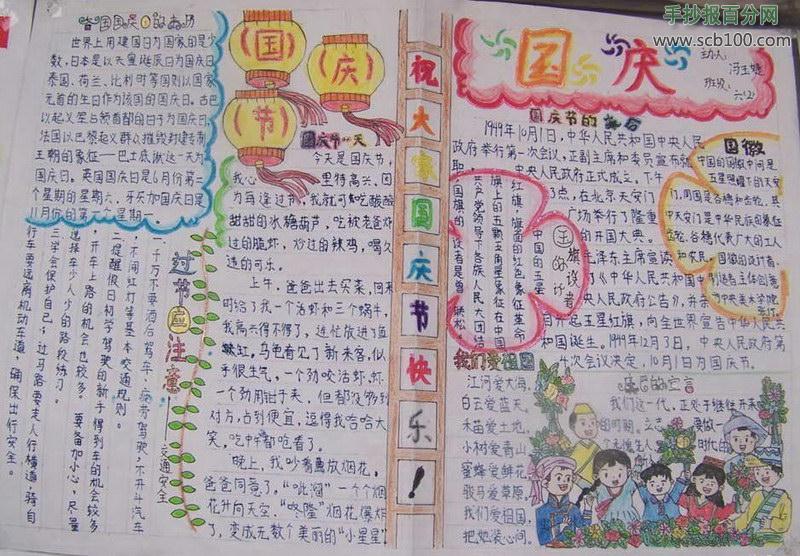 各国国庆日的由历
世界上用建国日为国家的是少
数,日本是以天皇诞辰日为国庆日
泰国、荷兰、比利时等国则以国家
元首的生日作为该国的国庆日。古巴
以起义发占领首都的日子为国庆日,
法国以巴黎起义群众摧毁封建专制
王朝的象征——巴士底狱这一天为
国庆日。英国国庆日是6月份第二
个星期的星期六,牙买加国庆日是
11月份的第一个星期一。
过节应注意
——交通安全
一、千万不要酒后驾车、疲劳驾驶,不开斗汽车
不闯红灯等基本交通规则。
二、提醒假日初学驾驶的新手得到车的机会较多
,开车上路的机会也较多。要备加小心,尽量
选择车少人少的路段练习。
三、学会保护自己,过马路要走人行横道,骑自
行车要远离机动车道,确保出行安全。
国
庆
节
国庆节一天
今天是国庆节,
我心里特高兴,因
为每逢过节,我就可以吃酸酸
甜甜的冰糖葫芦,吃被老爸炸
过的脆虾,炒过的辣鸡,喝久
违的可乐。
上午,爸爸出去买菜,回来
时给了我一个活虾和三个蜗牛,
我高兴得不得了,连忙放进了鱼
缸,乌龟看见了新来客,似
乎很生气,一个劲咬活虾,虾
一个劲用钳子夹,但都没够到
对方,占到便宜,逗得我哈哈大
笑,吃中都吃着了。
晚上,我吵着要放烟花,
爸爸同意了。“吡溜”一个个烟
花升向天空,“咚隆”烟花爆炸
了,变成无数个美丽的“小星星”
祝大家国庆节快乐!
手抄报百分网
www.scb100.com
国庆
班级:六(2)
国庆节的
1949年10月1日,中华人民共和国中央人民
政府举行第一次会议,正副主席和委员宣布就
中央人民政府正式成立。下午
3点,在北京天安门
广场举行了隆重
的开国大典。
毛泽东主席宣读
了《中华人民共和国中
央人民政府公告》,并亲
自升起五星红旗,向全世界宣告中华人民共
和国诞生。1949年12月3日,中央人民政府第
4次会议决定,10月1日为国庆节。
国旗的设计者
中国的五星
红旗,旗面的红色象征革命
旗上的五颗五角星象征在中国
共产党领导下各族人民大团结
国旗的设计者是曾联松
国徽
中国的国徽中间是
五星照耀下的天安
门,周围是谷穗和齿轮。其
中天安门是中华民族的象征
齿轮、谷穗代表广大的工人
和农民。国徽的设计者
我们爱祖国
江河爱大海,
白云爱蓝天。
禾苗爱土地,
小树爱青山,
蜜蜂爱鲜花,
骏马爱草原。
我们爱祖国,
把她装心间。
我们这一代,正处于继往开来
的时期。